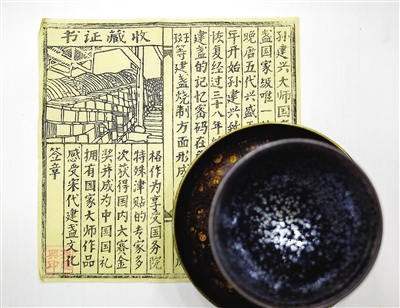 收藏证书
孙建兴大师国
盏国家级唯一
晚唐五代兴盛
年开始孙建兴
恢复经过三十八年
建盏的记忆密码在
斑等建盏烧制方面形成
格作为享受国务院
特殊津贴的专家多
次获得国内大赛金
奖并成为中国国礼
拥有国家大师作品
感受宋代建盏文化
签章